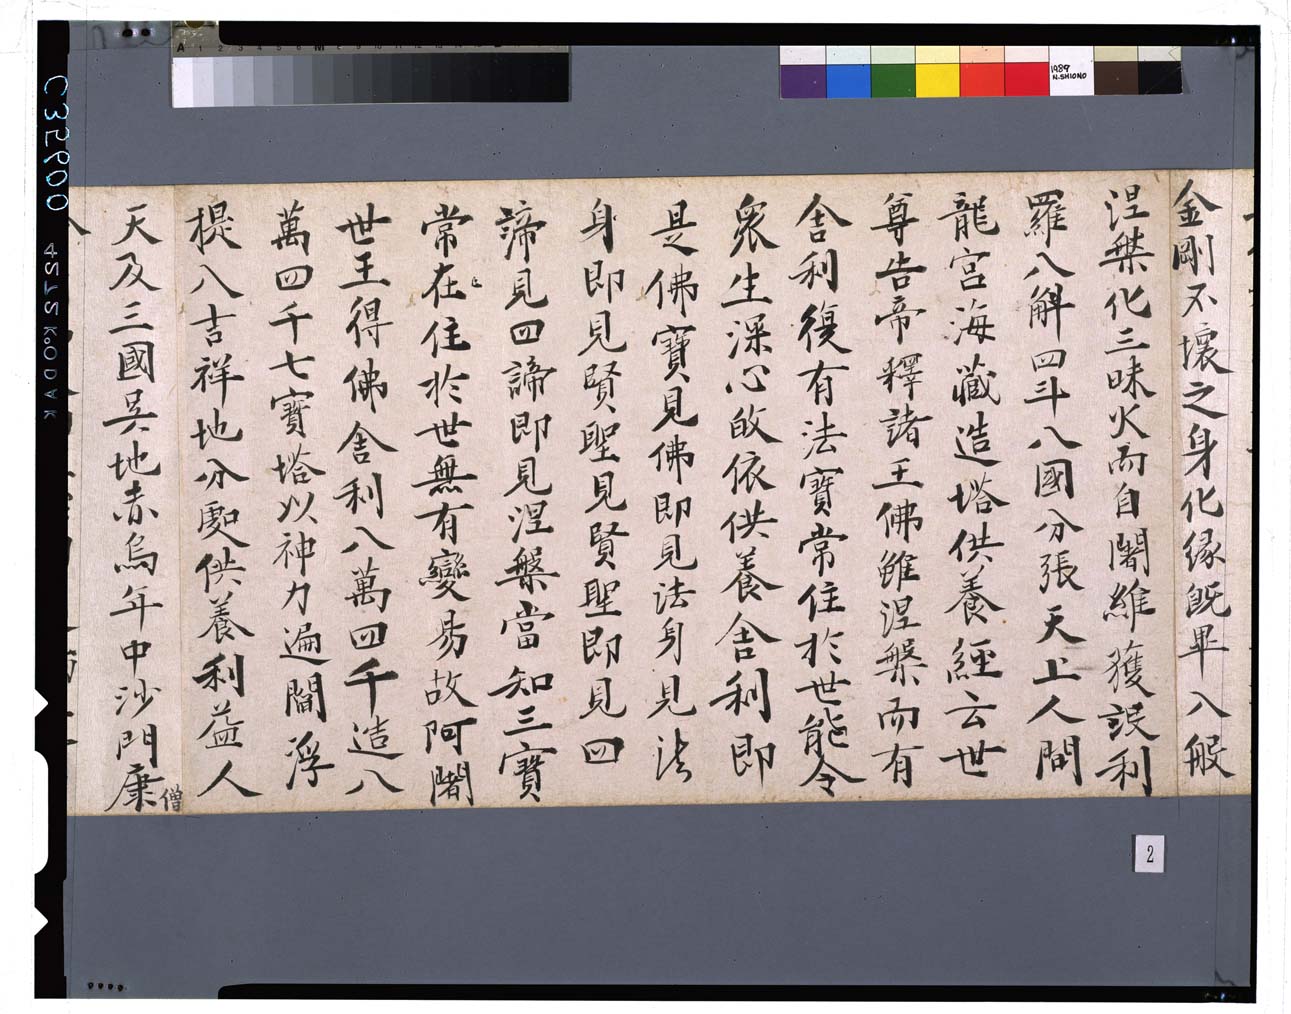 金剛不壞之身化縁既畢入般
涅槃化三昧火而自闍維獲設利
羅八斛四斗八國分張天上人間
龍宮海藏造塔供養經云世
尊告帝釋諸王佛雖涅槃而有
舍利復有法寶常住於世能令
衆生深心皈依供養舍利即
是佛寶見佛即見法身見法
身即見賢聖見賢聖即見四
諦見四諦即見涅槃當知三寶
常在住於世無有變易故阿闍
世王得佛舍利八萬四千造八
萬四千七寶塔以神力遍閻浮
提八吉祥地分處供養利益人
天及三國吳地赤烏年中沙門康
僧
A 1 2 3 4 5 6 M 8 9 10 11 12 13 14 15
1989
N.SHIONO
2
C35900
4272 KODAK